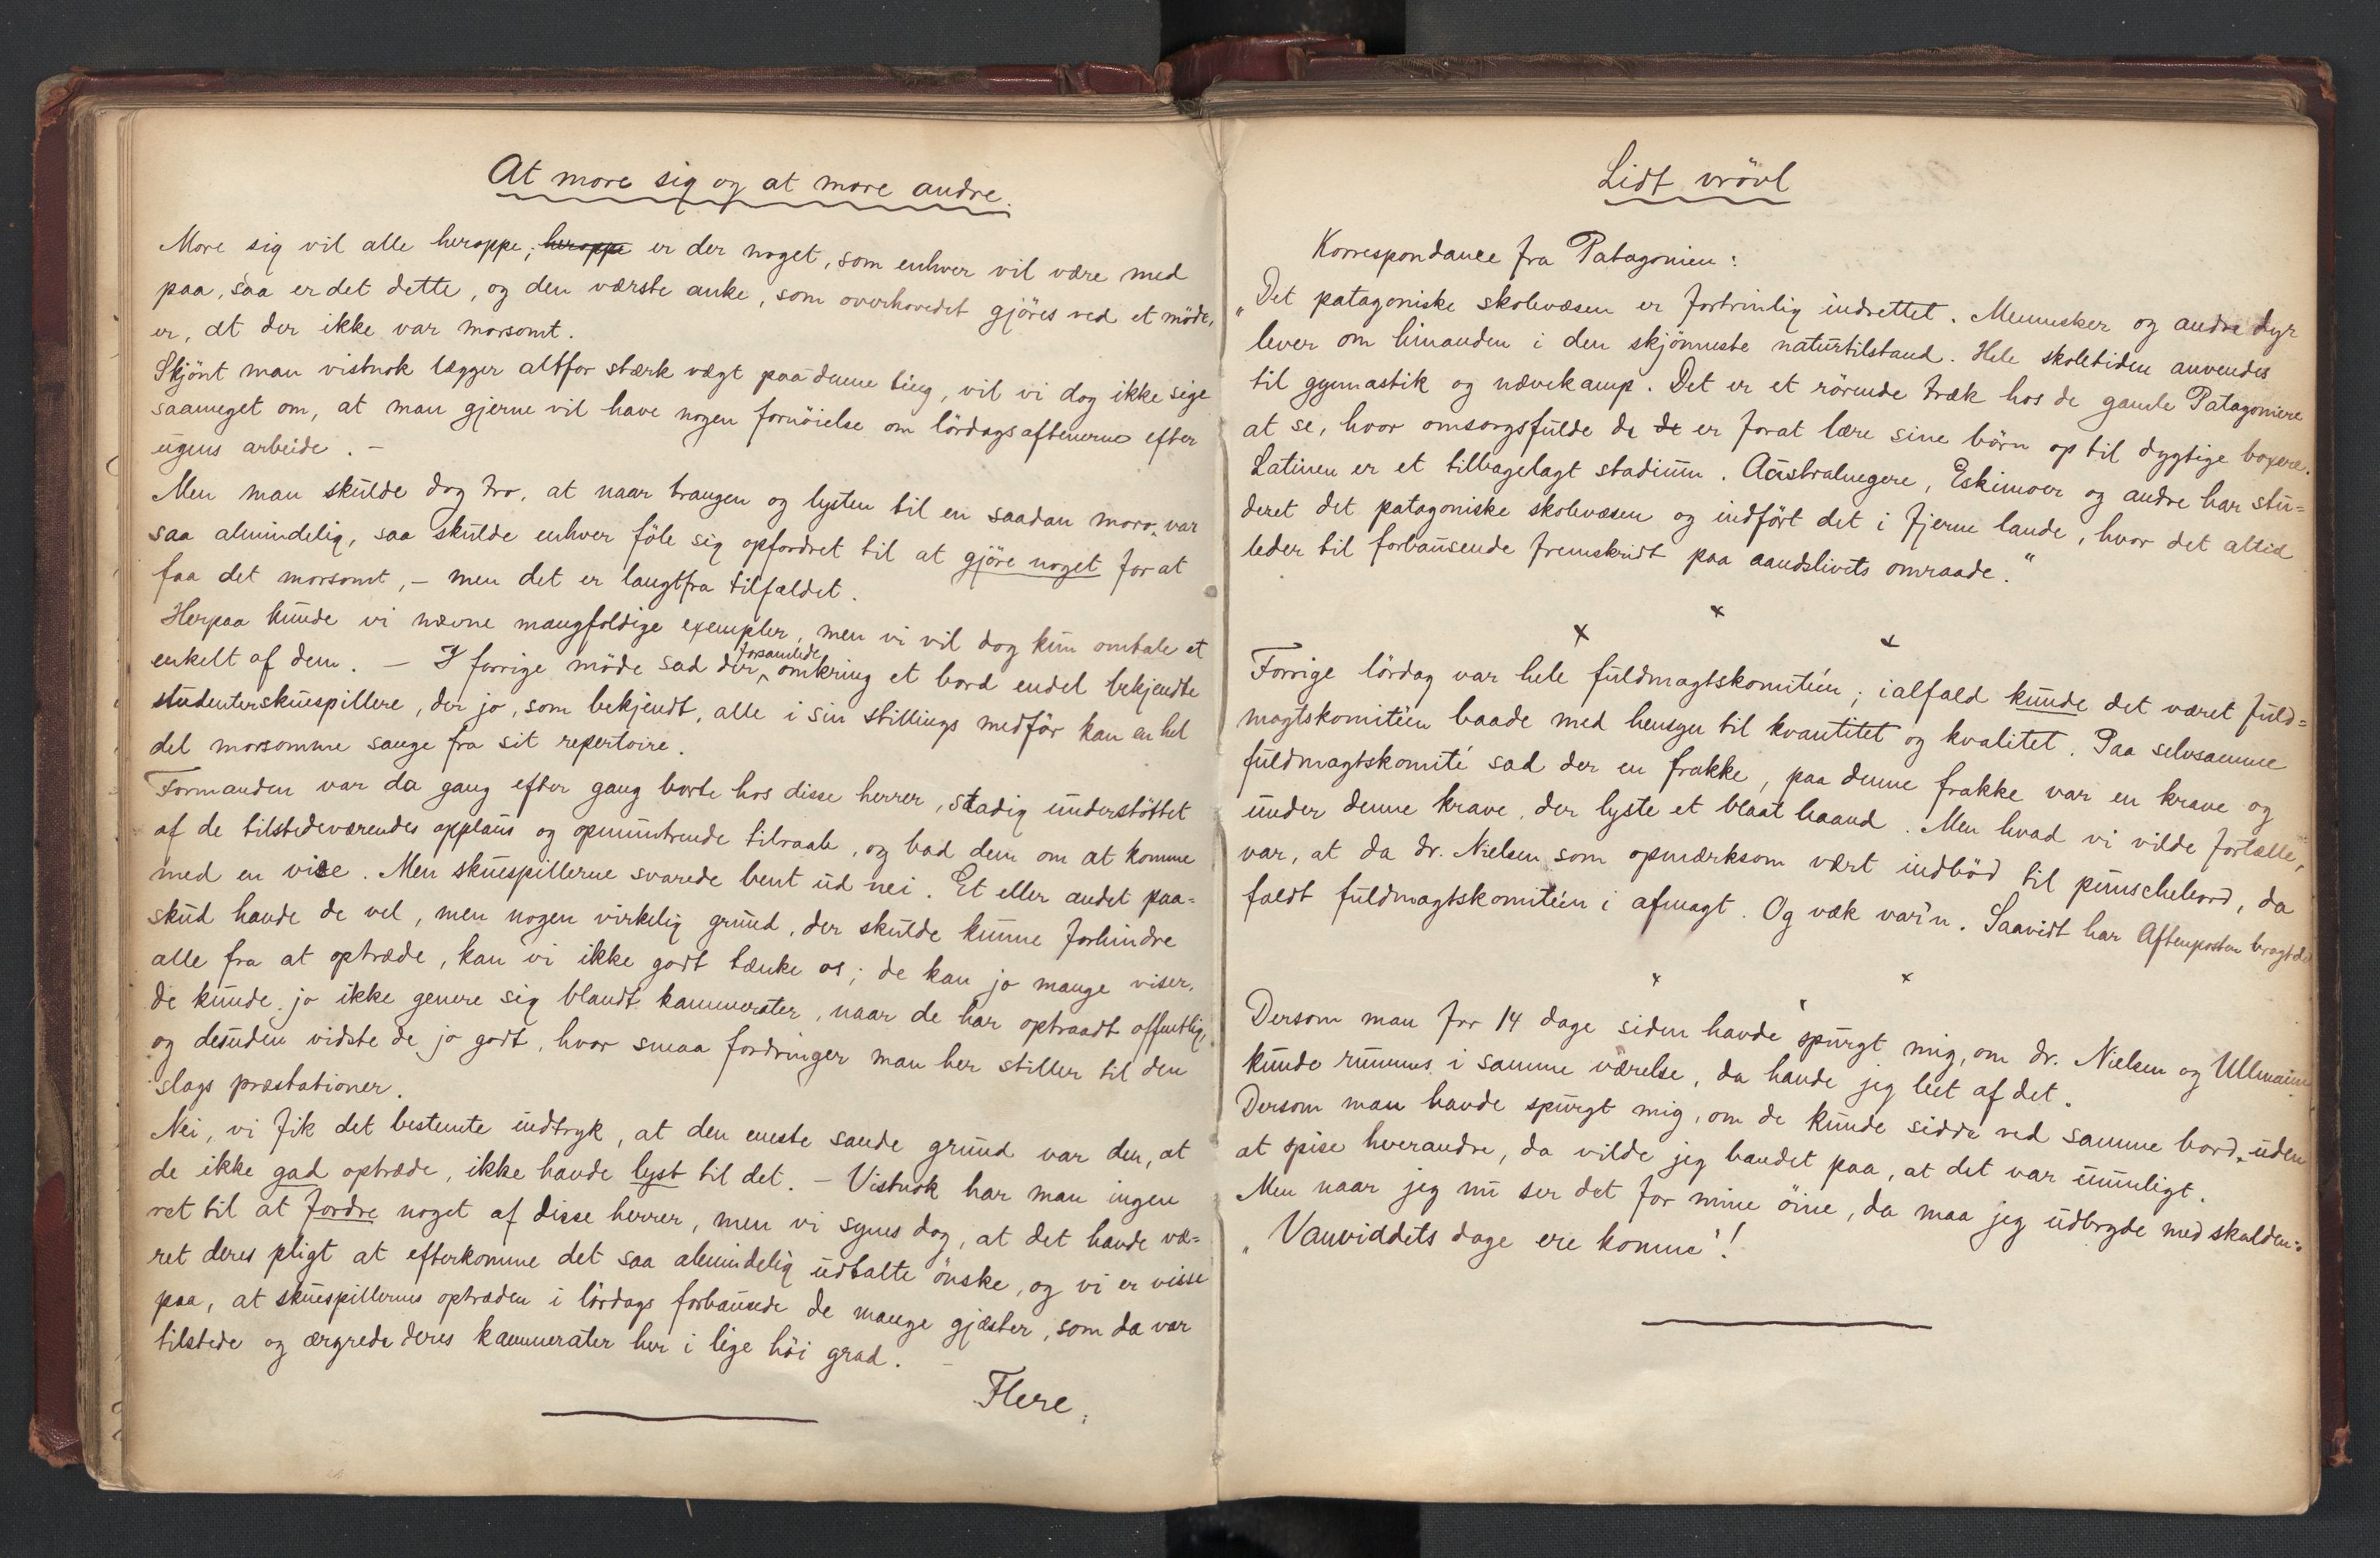 At more sig og at more andre.
More sig vil alle heroppe; heroppe er der noget, som enhver vil være med
paa, saa er det dette, og den værste anke, som overhovedet gjöres ved et möde,
er, at der ikke var morsomt.
Skjönt man vistnok lægger altfor stærk vægt paa denne ting, vil vi dog ikke sige
saameget om, at man gjerne vil have nogen fornöielse om lördagsaftenerne efter
ugens arbeide. -
Men man skulde dog tro, at naar trangen og lysten til en saadan moro, var
saa almindelig, saa skulde enhver föle sig opfordret til at gjöre noget for at
faa det morsomt, - men det er langtfra tilfældet.
Herpaa kunde vi nævne mangfoldige exempler, men vi vil dog kun omtale et
enkelt af dem. - I forrige möde sad der forsamlede omkring et bord endel bekjendte
studenterskuespillere, der jo, som bekjendt, alle i sin stillings medför kan en hel
del morsomme sange fra sit repertoire.
Formanden var da gang efter gang borte hos disse herrer, stadig understöttet
af de tilstedeværendes applaus og opmuntrende tilraab, og bad dem om at komme
med en vise. Men skuespillerne svarede bent ud nei. Et eller andet paa=
skud havde de vel, men nogen virkelig grund, der skulde kunne forhindre
alle fra at optræde, kan vi ikke godt tænke os; de kan jo mange viser,
de kunde jo ikke genere sig blandt kammerater, naar de har optraadt offentlig,
og desuden vidste de jo godt, hvor smaa fordringer man her stiller til den
slags præstationer.
Nei, vi fik det bestemte indtryk, at den eneste sande grund var den, at
de ikke gad optræde, ikke havde lyst til det. - Vistnok har man ingen
ret til at fordre noget af disse herrer, men vi synes dog, at det havde væ=
ret deres pligt at efterkomme det saa almindelig udtalte önske, og vi er visse
paa, at skuespillernes optræden i lördags forbausede de mange gjæster, som da var
tilstede og ærgrede deres kammerater her i lige höi grad. -
Flere.
Lidt vrövl
Korrespondance fra Patagonien:
"Det patagoniske skolevæsen er fortrinlig indrettet. Mennesker og andre dyr
lever om hinanden i den skjönneste naturtilstand. Hele skoletiden anvendes
til gymnastik og nævekamp. Det er et rörende træk hos de gamle Patagoniere
at se, hvor omsorgsfulde de de er forat lære sine börn op til dygtige boxere.
Latinen er et tilbagelagt stadium. Australnegere, Eskimoer og andre har stu=
deret det patagoniske skolevæsen og indfört det i fjerne lande, hvor det altid
leder til forbausende fremskridt paa aandslivets omraade."
x x x
Forrige lördag var hele fuldmagtskomitéen; ialfald kunde det været fuld=
magtskomitéen baade med hensyn til kvantitet og kvalitet. Paa selvsamme
fuldmagtskomité sad der en frakke, paa denne frakke var en krave og
under denne krave, der lyste et blaat baand. Men hvad vi vilde fortælle,
var, at da dr. Nielsen som opmærksom vært indböd til punschebord, da
faldt fuldmagtskomitéen i afmagt. Og væk var'n. Saavidt har Aftenposten bragt det
x x x
Dersom man for 14 dage siden havde spurgt mig, om dr. Nielsen og Ullmann
kunde rummes i samme værelse, da havde jeg leet af det.
Dersom man havde spurgt mig, om de kunde sidde ved samme bord, uden
at spise hverandre, da vilde jeg bandet paa, at det var umuligt.
Men naar jeg nu ser det for mine öine, da maa jeg udbryde med skalden:
"Vanviddets dage ere komne"!